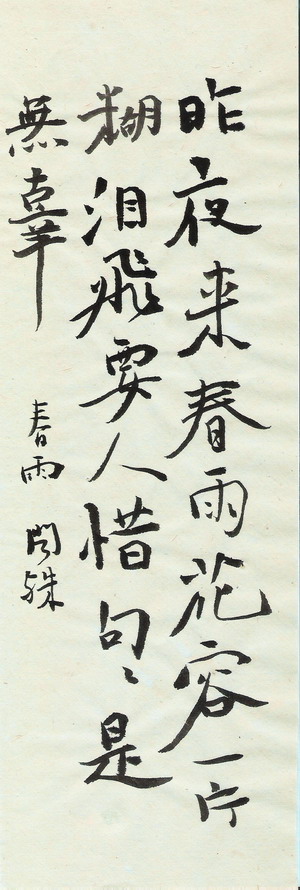 昨夜来春雨花容一片
糊泪飛要人惜句々是
無辜
春雨